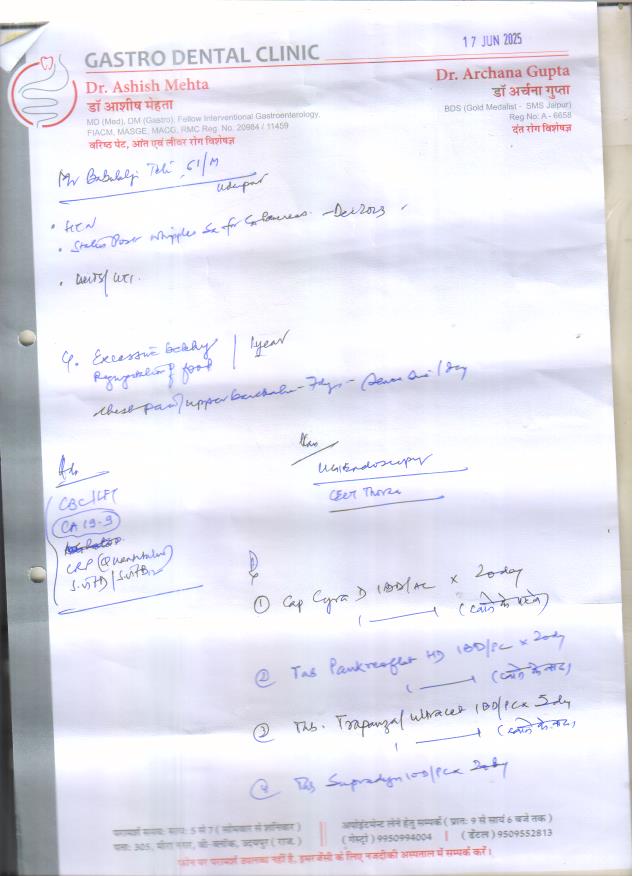 17 JUN 2025
GASTRO DENTAL CLINIC
Dr. Ashish Mehta
डॉ आशीष मेहता
MD (Med), DM (Gastro), Fellow Interventional Gastroenterology,
FIACM, MASGE, MACG, RMC Reg. No. 20984 / 11459
वरिष्ठ पेट, आँत एवं लीवर रोग विशेषज्ञ
Dr. Archana Gupta
डॉ अर्चना गुप्ता
BDS (Gold Medalist - SMS Jaipur)
Reg No: A - 6658
दंत रोग विशेषज्ञ
Mr 61/M
Udaipur
• HTN
• Status Post Whipples Sx for - Dec 2023
• LUTS/
Excessive belching
Regurgitation of food
1 year
Chest pain/upper - 7dys -
Adv
CBC/LFT
CA 19-9
CRP (Quantitative)
S.VitD/S.VitB12
UGI Endoscopy
CECT Thorax
① Cap Cyra D 1BD/AC x 20day
(खाने के पहले)
② Tab Pankreoflat HD 1BD/PC x 20dy
(खाने के बाद)
③ Tab. Trapanza/ultracet 1BD/PC x 5dy
(खाने के बाद)
④ Tab Supradyn 1OD/PC x 20dy
परामर्श समय: सायं: 5 से 7 ( सोमवार से शनिवार )
पता: 305, मीरा नगर, बी-ब्लॉक, उदयपुर ( राज. )
अपोईंटमेन्ट लेने हेतु सम्पर्क ( प्रात: 9 से सायं 6 बजे तक )
( गेस्ट्रो ) 9950994004 | ( डेंटल ) 9509552813
फोन पर परामर्श उपलब्ध नहीं है, इमरजेंसी के लिए नजदीकी अस्पताल में सम्पर्क करें।